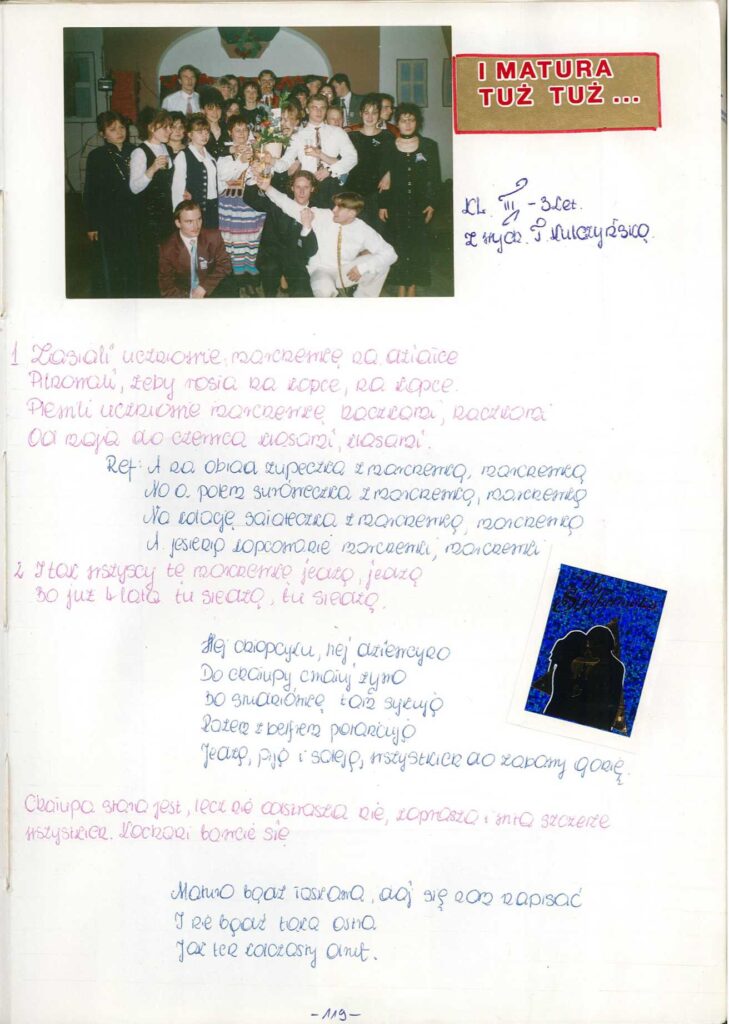 I MATURA
TUŻ TUŻ ...
KL. III - 3 let.
Z wych. P. Kulczyńską.
1 Zasiali uczniowie, marchewkę na działce
Pilnowali, żeby rosła na kopce, na kopce.
Plewili uczniowie marchewkę rączkami, rączkami
Od maja do czerwca klasami, klasami.
Ref: A na obiad zupeczka z marchewką, marchewką
No a potem suróweczka z marchewką, marchewką
Na kolację sałateczka z marchewką, marchewką
A jesienią kopcowanie marchewki, marchewki
2 I tak wszyscy tę marchewkę jedzą, jedzą
Bo już 4 lata tu siedzą, tu siedzą.
Hej chłopcyku, hej dziewcyno
Do chałupy cwałuj żywo
Bo studniówkę tam sykują
Razem z belfrem potańcują
Jedzą, piją i saleją, wszystkich do zabawy gonią.
Chałupa stara jest, lecz nie odstrasza nie, zaprasza i wita szczerze
wszystkich. Kochani bawcie się
Maturo bądź łaskawa, daj się nam napisać
I nie bądź taka ostra
Jak ten kolczasty drut.
-119-